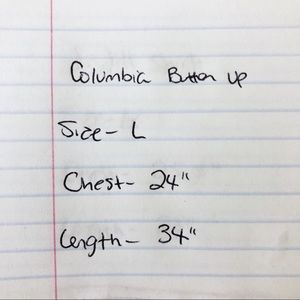 Columbia Button up
Size- L
Chest- 24"
Length- 34"